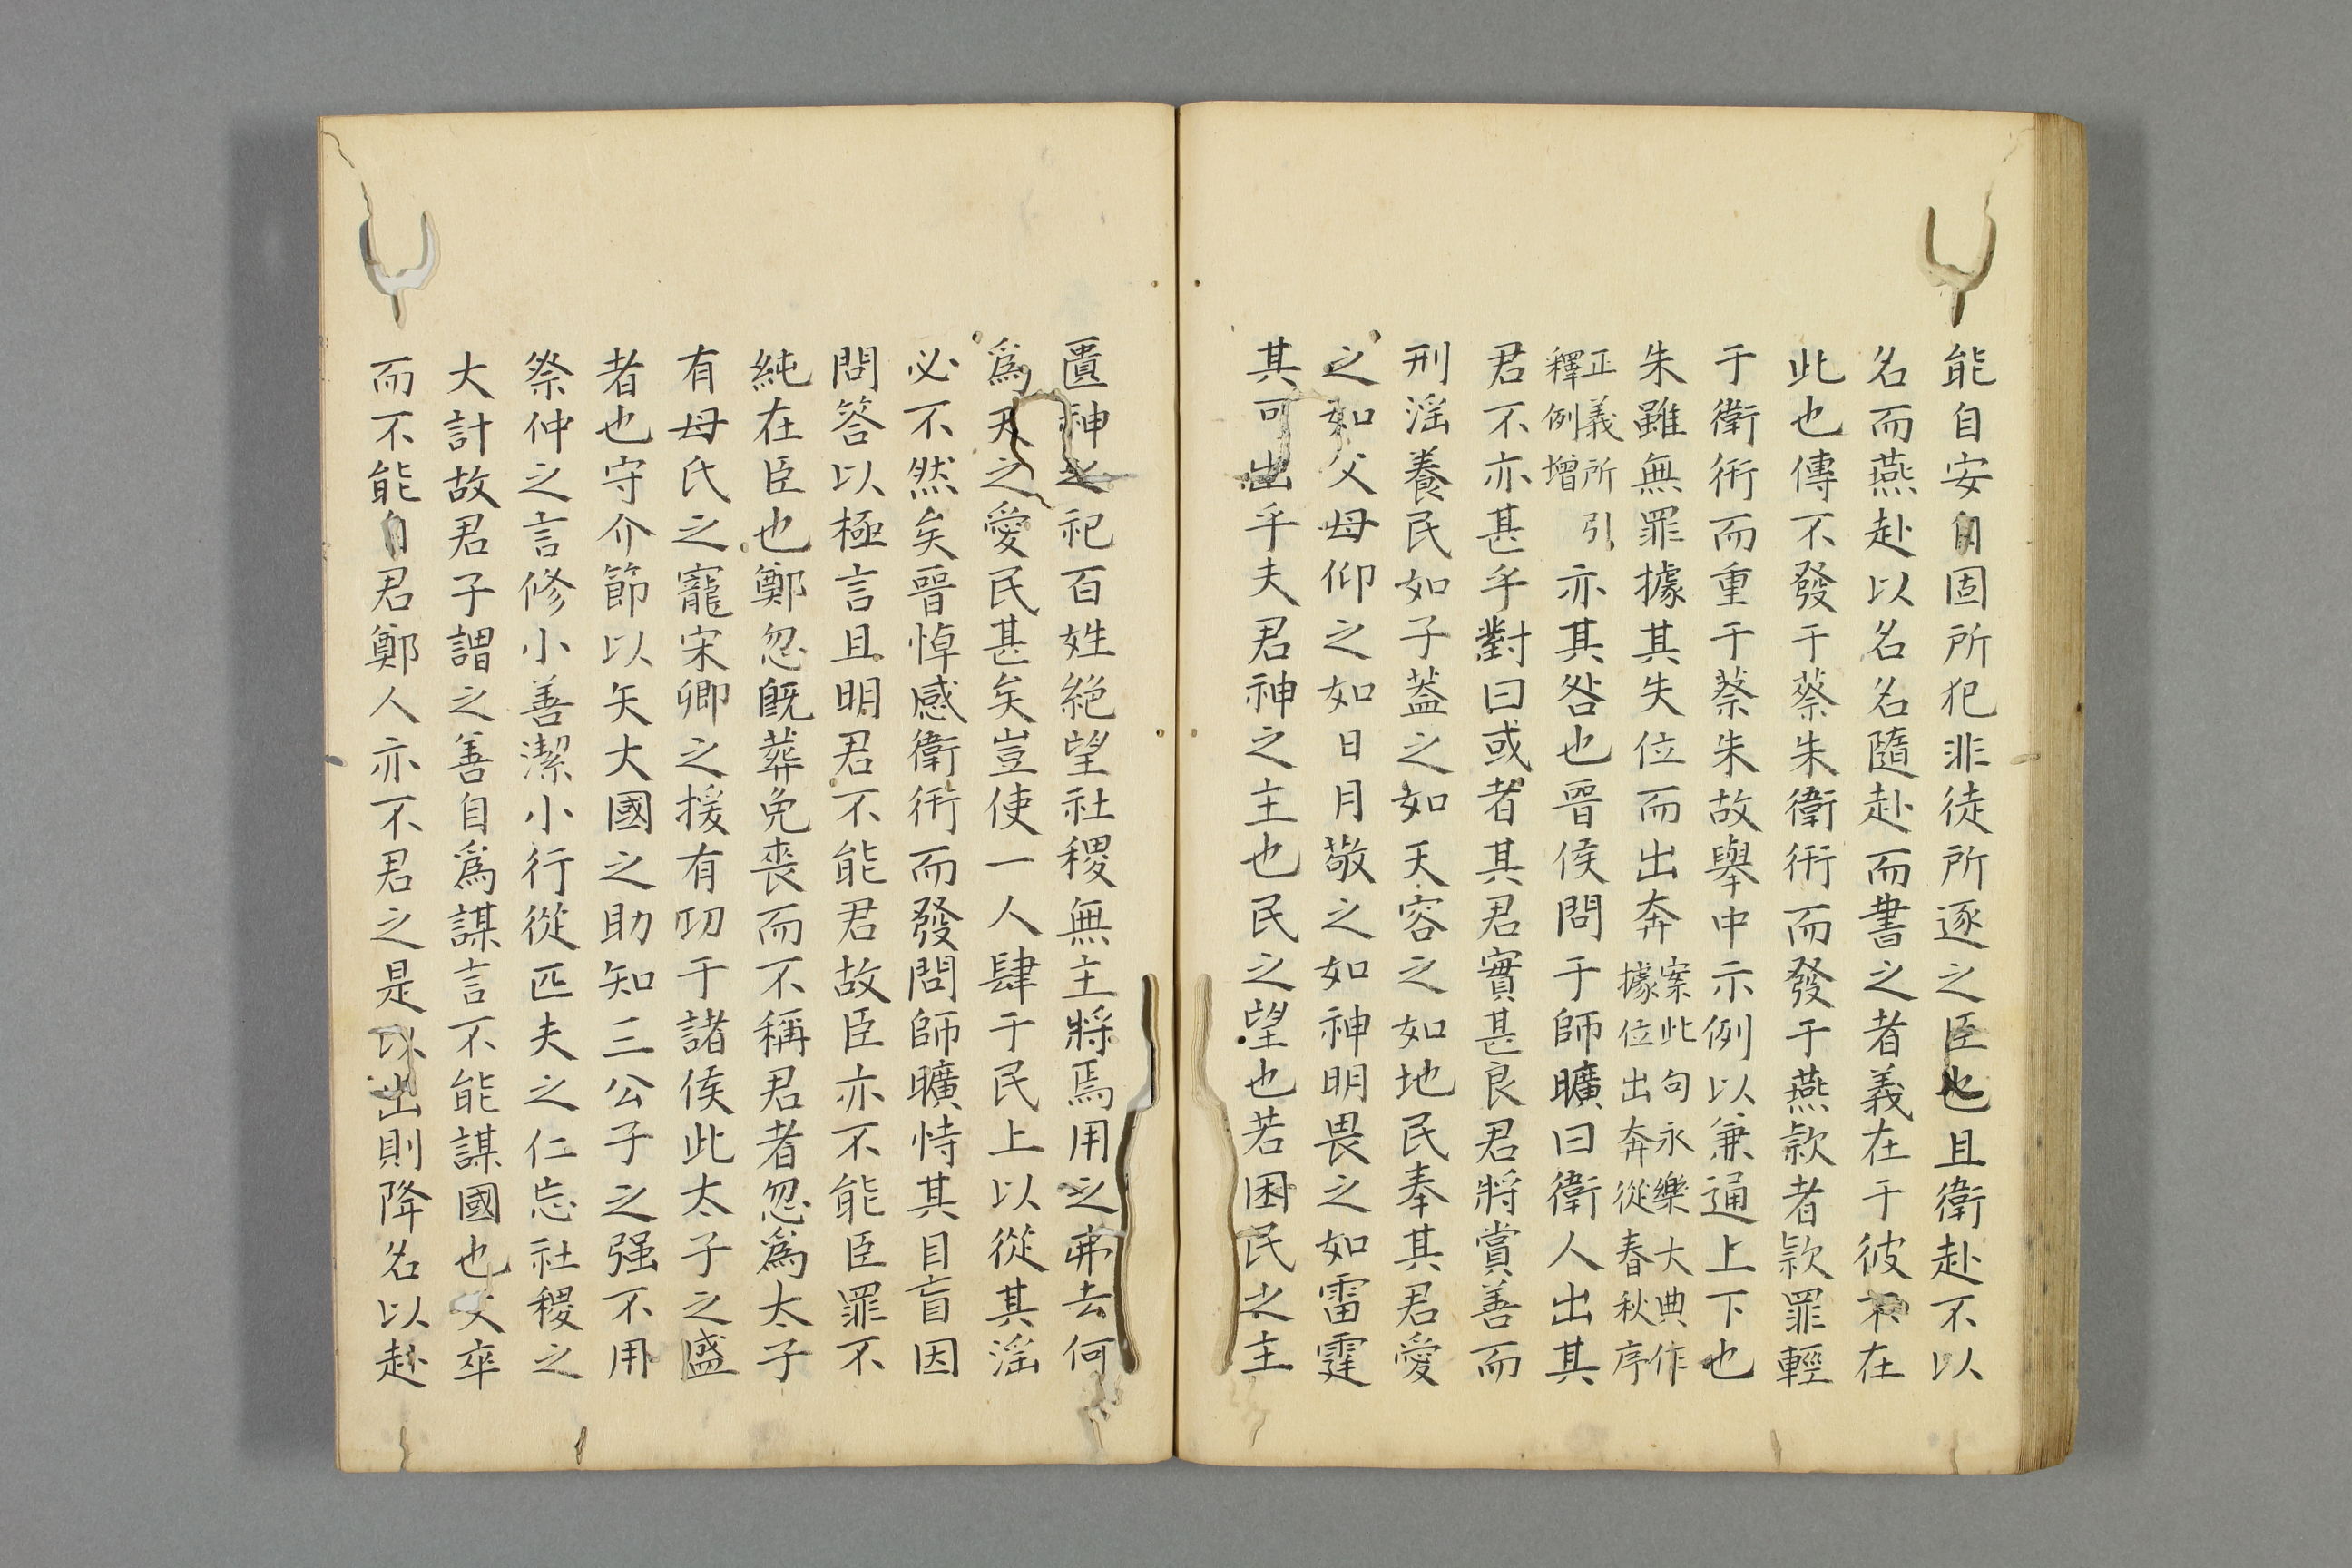 能自安自固所犯非徒所逐之臣也且衛赴不以
名而燕赴以名名隨赴而書之者義在于彼不在
此也傳不發于蔡朱衛衎而發于燕款者款罪輕
于衛衎而重于蔡朱故舉中示例以兼通上下也
朱雖無罪據其失位而出奔案此句永樂大典作據位出奔從春秋序
正義所引釋例增亦其咎也晉侯問于師曠曰衛人出其
君不亦甚乎對曰或者其君實甚良君將賞善而
刑淫養民如子蓋之如天容之如地民奉其君愛
之如父母仰之如日月敬之如神明畏之如雷霆
其可出乎夫君神之主也民之望也若困民之主
匱神之祀百姓絶望社稷無主將焉用之弗去何
爲天之愛民甚矣豈使一人肆于民上以從其淫
必不然矣晉悼感衛衎而發問師曠恃其目盲因
問答以極言且明君不能君故臣亦不能臣罪不
純在臣也鄭忽既葬免喪而不稱君者忽爲太子
有母氏之寵宋卿之援有功于諸侯此太子之盛
者也守介節以失大國之助知三公子之强不用
祭仲之言修小善潔小行從匹夫之仁忘社稷之
大計故君子謂之善自爲謀言不能謀國也父卒
而不能自君鄭人亦不君之是以出則降名以赴